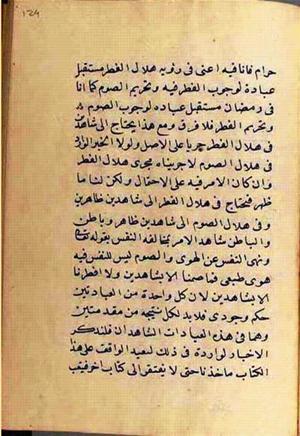 ١٢٤
حرام فانا فيه اعنى فى رؤية هلال الفطر مستقبل
عبادة لوجوب الفطر فيه وتحريم الصوم كما انا
فى رمضان مستقبل عباده لوجوب الصوم
وتحريم الفطر فلا فرق ومع هذا يحتاج الى شاهدين
فى هلال الفطر جريا على الاصل ولولا الخبر الوارد
فى هلال الصوم لاجريناه مجرى هلال الفطر
وان كان الامر فيه على الاحتمال ولكن لنا ما
ظهر فنحتاج فى هلال الفطر الى شاهدين ظاهرين
وفى هلال الصوم الى شاهدين ظاهر وباطن
والباطن شاهد الامر بمخالفه النفس بقوله تعالى
ونهى النفس عن الهوى والصوم ليس للنفس فيه
هوى طبعى فما صمنا الا بشاهدين ولا افطرنا
الا بشاهدين لان كل واحدة من العبادتين
حكم وجودى فلا بد لكل نتيجه من مقدمتين
وهما فى هذه العبادات الشاهدان فلنذكر
الاخبار الواردة فى ذلك ليعيد الواقف على هذا
الكتاب ماخذنا حتى لا يفتقر الى كتاب اخر فيتب